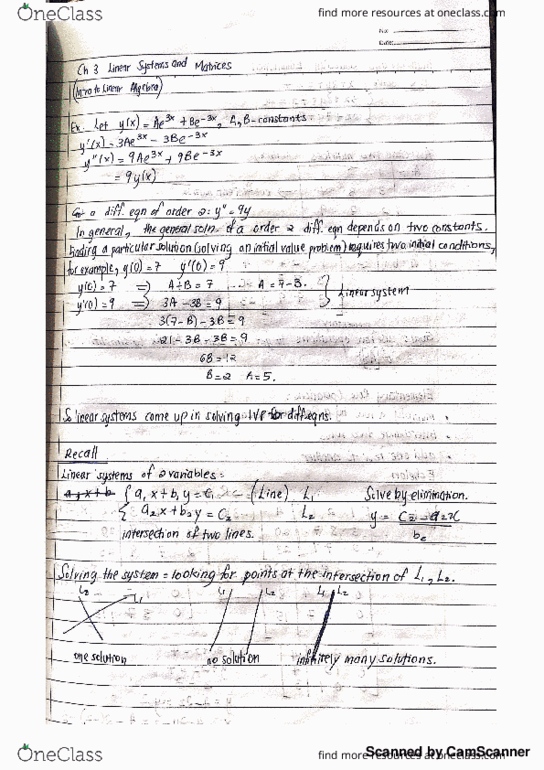 OneClass
find more resources at oneclass.com
No:
Date:
Ch 3 Linear Systems and Matrices
(Intro to Linear Algebra)
Ex. Let y(x) = Ae^3x + Be^-3x, A, B-constants
y'(x) = 3Ae^3x - 3Be^-3x
y''(x) = 9Ae^3x + 9Be^-3x
= 9y(x)
a diff. eqn of order 2: y'' = 9y
In general, the general soln. of a order 2 diff. eqn depends on two constants.
Finding a particular solution (solving an initial value problem) requires two initial conditions,
for example, y(0) = 7 y'(0) = 9
y(0) = 7 => A+B = 7 ... A = 7-B.
y'(0) = 9 => 3A - 3B = 9 } Linear system
3(7-B) - 3B = 9
21 - 3B - 3B = 9
6B = 12
B = 2 A = 5.
So linear systems come up in solving IVP for diff eqns.
Recall
Linear systems of 2 variables:
{ a, x + b, y = c, (Line) L₁ Solve by elimination.
{ a₂x + b₂y = C₂ L₂ y = C₂ - a₂x
b₂
intersection of two lines.
Solving the system = looking for points at the intersection of L₁, L₂.
L₂ L₁ L₁ L₂ L₁ L₂
one solution no solution infinitely many solutions.
OneClass
find more resources at oneclass.com
Scanned by CamScanner